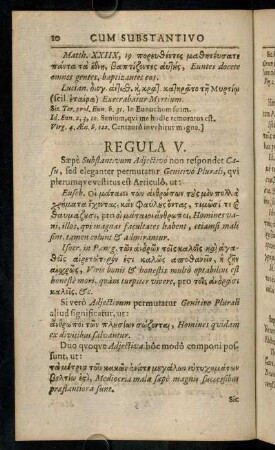 20 CUM SUBSTANTIVO
Matth. XXIIX, 19 πορευθέντες μαθητεύσατε
πάντα τὰ ἔθνη, βαπτίζοντες αὐτὺς, Euntes docete
omnes gentes, baptizantes eos.
Lucian. κατηρᾶτο τῇ Μυρτίῳ
(scil. ἑταίρα) Execrabatur Mirtium.
Sic Ter. prol. Eun. v. 31. In Eunuchum suum.
Id. Eun. 2, 3, 10. Senium, qui me hodie remoratus est.
Virg. 5, Æn. v. 122. Centauro invehitur magna.)
REGULA V.
Sæpè Substantivum Adjectivo non respondet Ca-
su, sed eleganter permutatur Genitivo Plurali, qui
plerumque vestitus est Articulô, ut:
Euseb. Οἱ μάταιοι τῶν ἀνθρώπων τὺς μὲν πολλὰ
χρήματα ἔχοντας, κἂν φαῦλοι ὄντες, τιμῶσί τε
θαυμάζυσι, pro οἱ μάταιοι ἄνθρωποι, Homines va-
ni, illos, qui magnas facultates habent, etiamsi mali
sint, tamen colunt & admirantur.
Isocr. in Paneg. τῶν ἀνδρῶν τοῖς καλοῖς κἀγαθ-
οῖς αἱρετώτερόν ἐστι καλῶς ἀποθανεῖν, ἢ ζῆν
αἰσχρῶς, Viris bonis & honestis multò optabilius est
honestè mori, quàm turpiter vivere, pro τοῖς ἀνδράσι
καλοῖς, &c.
Si verò Adjectivum permutatur Genitivo Plurali
aliud significatur, ut:
ἄνθρωποι τῶν πλυσίων σώζονται, Homines quidam
ex divitibus salvantur.
Duo quoque Adjectiva hôc modô componi pos-
sunt, ut:
τὰ μέτρια τῶν κακῶν μεγάλων εὐτυχημάτων
βελτίω ἐστὶ, Mediocria mala sæpè magnis successibus
præstantiora sunt.
Sic